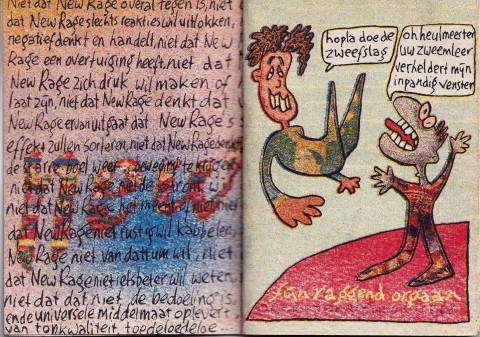 Niet dat New Rage overal tegen is, niet
dat New Rage slechts reakties wil uitlokken,
negatief denkt en handelt, niet dat New
Rage een overtuiging heeft, niet dat
New Rage zich druk wil maken of
laat zijn, niet dat New Rage denkt dat
New Rage ervan uitgaat dat New Rage's
effekt zullen sorteren, niet dat New Rage
de starre boel weer beweging te krijgen
niet dat New Rage niet de
niet dat New Rage het meent of niet, niet
dat New Rage niet rustig wil kabbelen,
New Rage niet van dattum wil, niet
dat New Rage niet iets beter wil weten,
niet dat dat niet de bedoeling is,
en de universele middelmaat oplevert
van topkwaliteit, toedeloedeloe...
hopla doe de
zweefslag
oh heulmeester
uw zweemleer
verheldert mijn
inpandig venster
zijn raggend orgaan